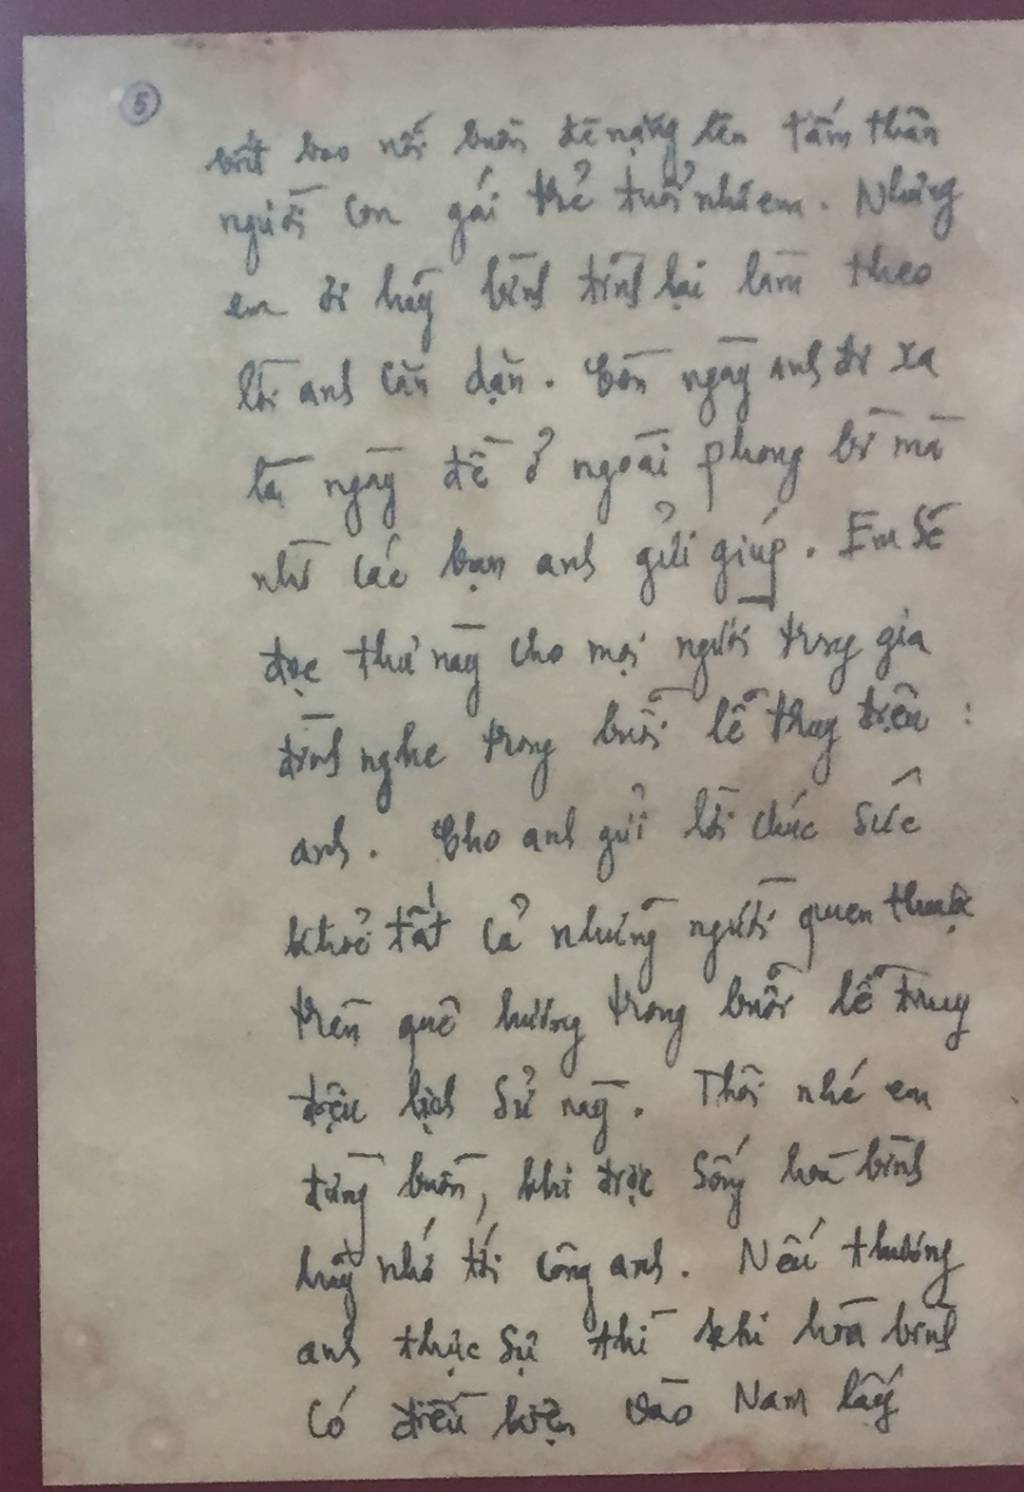 5
biết bao nỗi buồn đè nặng lên tấm thân
người con gái trẻ tuổi như em. Nhưng
em ơi hãy bình tĩnh lại làm theo
lời anh căn dặn. Còn ngày anh đi xa
là ngày đề ở ngoài phong bì mà
nhờ các bạn anh gửi giúp. Em sẽ
đọc thư này cho mọi người trong gia
đình nghe trong buổi lễ truy điệu :
anh. Cho anh gửi lời chúc sức
khoẻ tất cả những người quen thuộc
trên quê hương trong buổi lễ truy
điệu lịch sử này. Thôi nhé em
đừng buồn, khi được sống hoà bình
hãy nhớ tới công anh. Nếu thương
anh thực sự thì khi hoà bình
có điều kiện vào Nam lấy